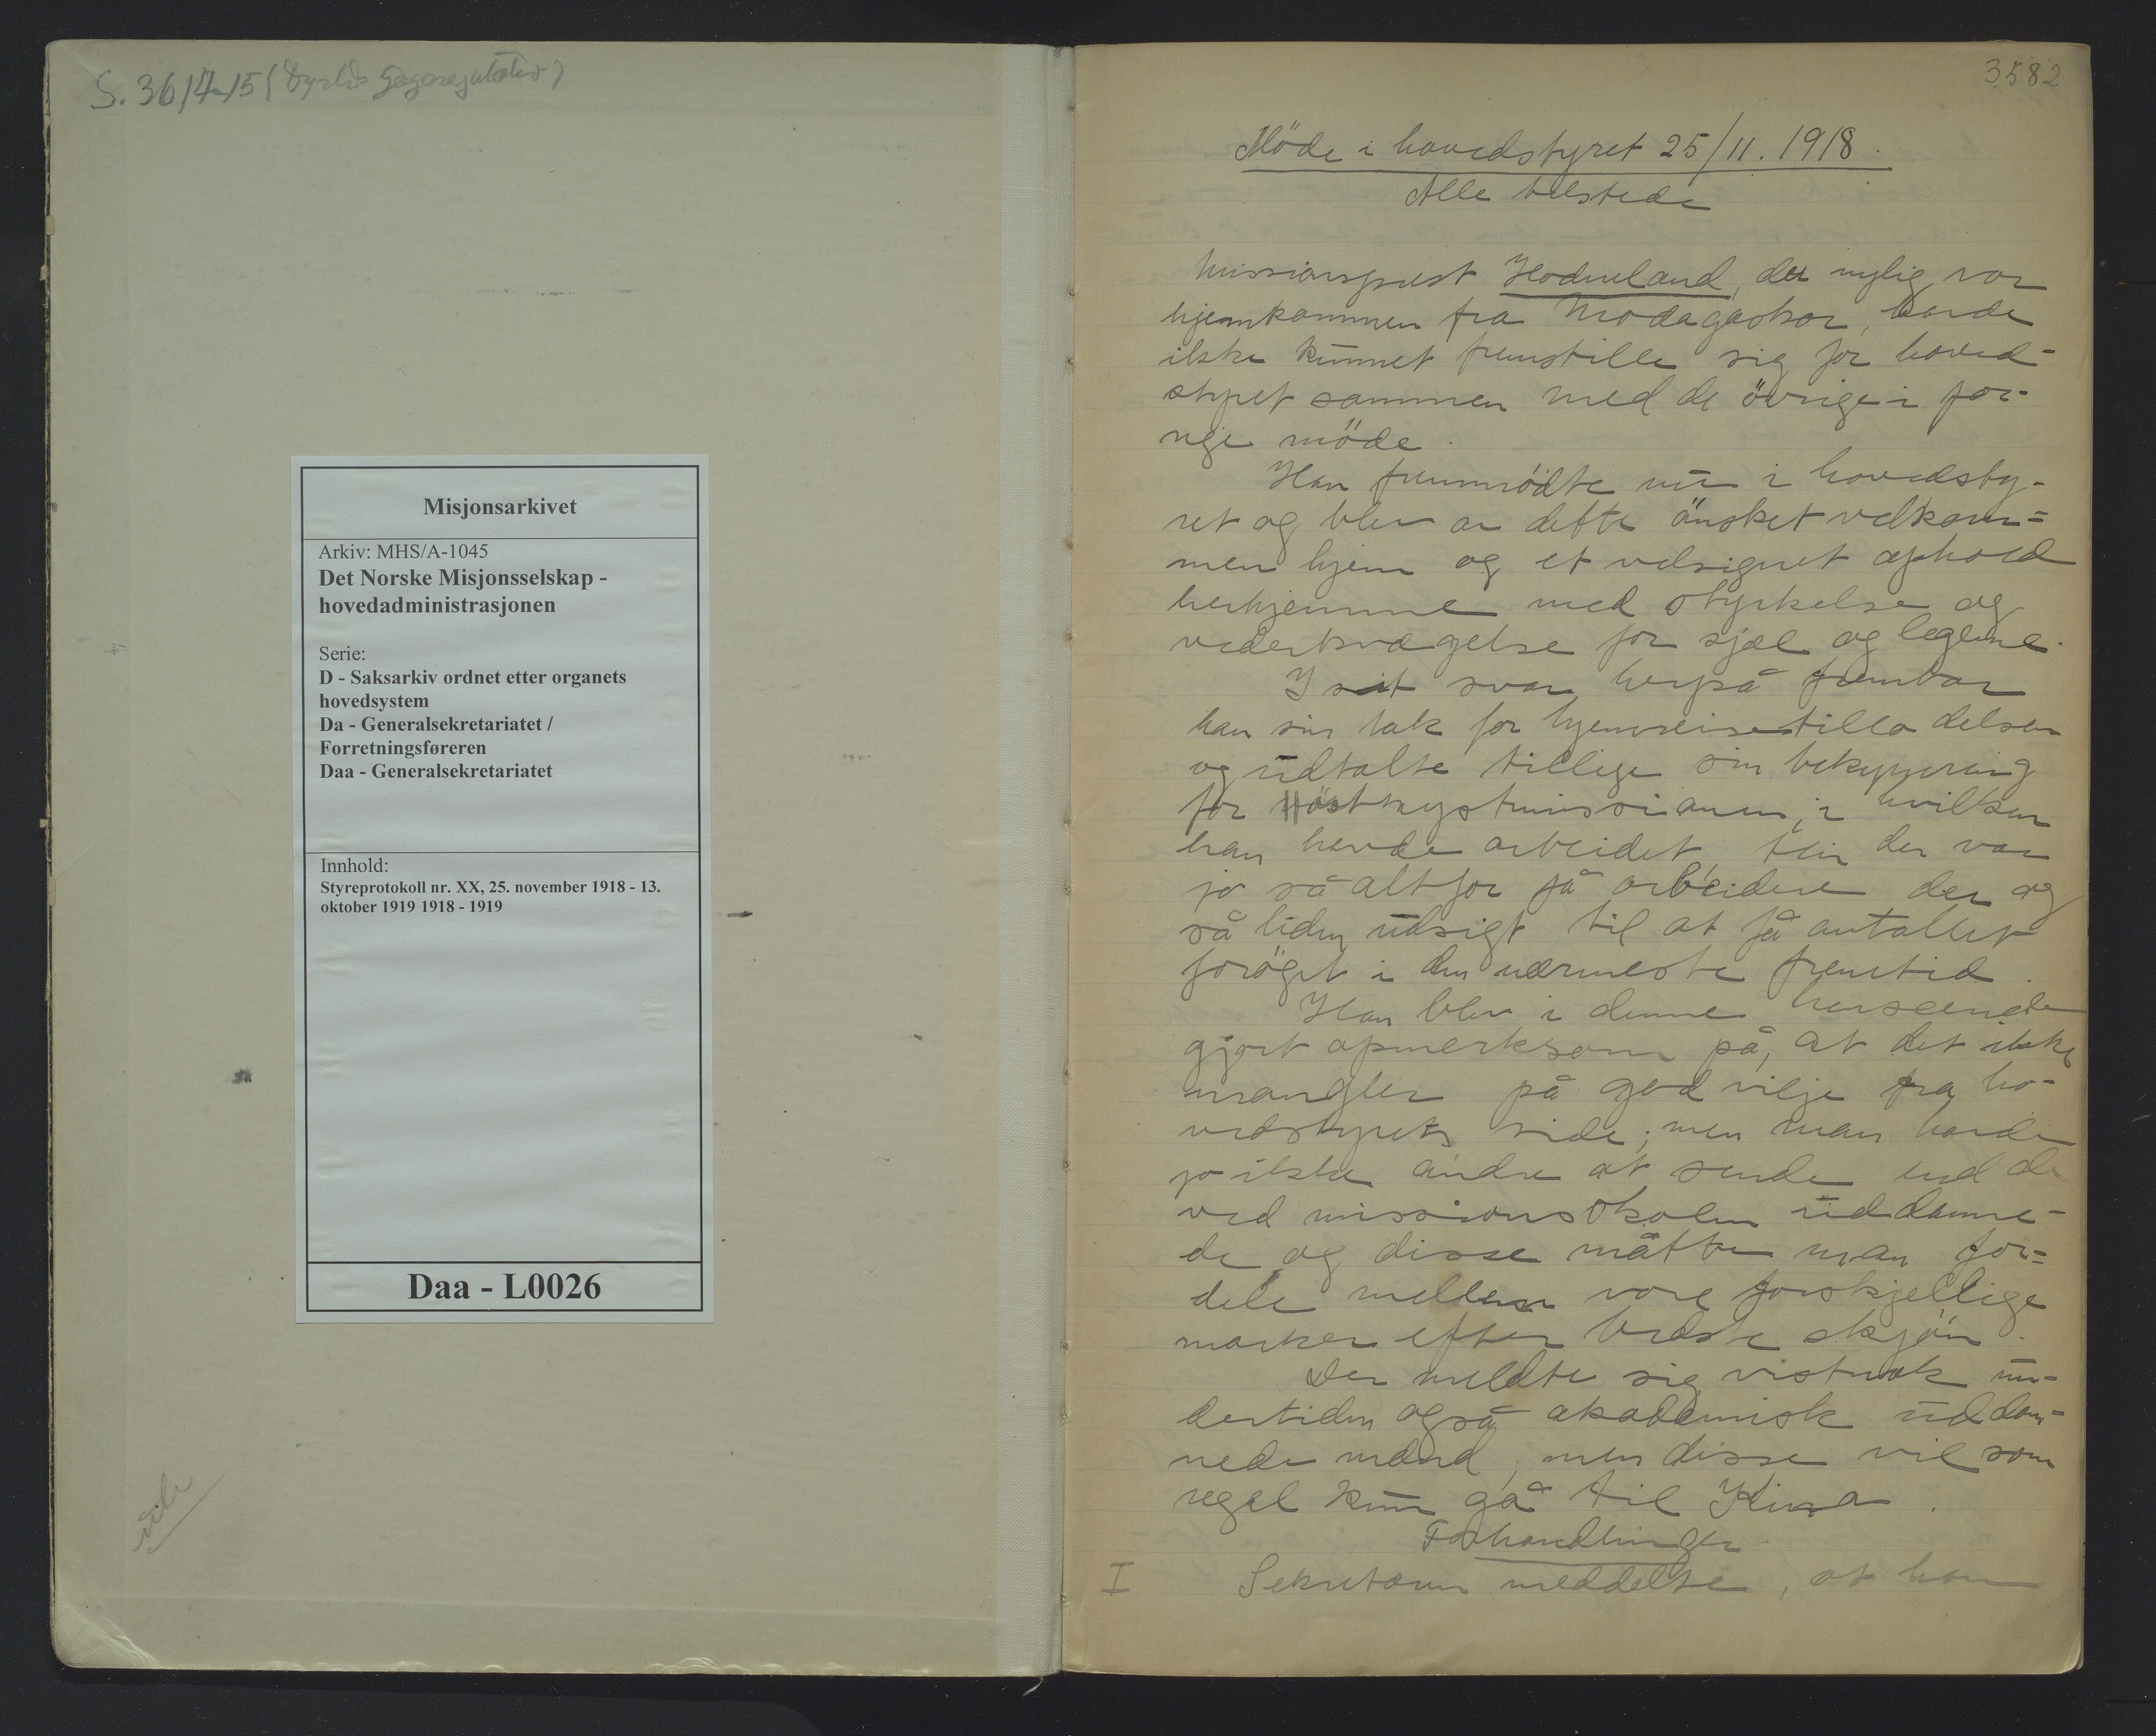 S. 36/7-15 (Dyrtids Gageregulativ)
Misjonsarkivet
Arkiv: MHS/A-1045
Det Norske Misjonsselskap -
hovedadministrasjonen
Serie:
D - Saksarkiv ordnet etter organets
hovedsystem
Da - Generalsekretariatet /
Forretningsføreren
Daa - Generalsekretariatet
Innhold:
Styreprotokoll nr. XX, 25. november 1918 - 13.
oktober 1919 1918 - 1919
Daa - L0026
3582
Möde i hovedstyret 25/11. 1918.
Alle tilstede
Missionsprest Hodneland, der nylig var
hjemkommen fra Madagaskar, havde
ikke kunnet fremstille sig for hoved-
styret sammen med de övrige i for-
rige möde.
Han fremmödte nu i hovedsty-
ret og blev av dette önsket velkom=
men hjem og et velsignet ophold
herhjemme med styrkelse og
vederkvægelse for sjæl og legeme.
I sit svar herpå frembar
han sin tak for hjemreisetilladelsen
og udtalte tillige sin bekymring
for östkystmissionen, i hvilken
han havde arbeidet, thi der var
jo så altfor få arbeidere der og
så liden udsigt til at få antallet
forøget i den nærmeste fremtid.
Han blev i denne henseende
gjort opmerksom på, at det ikke
mangler på god vilje fra ho-
vedstyrets side; men man havde
jo ikke andre at sende end de
ved missionsskolen uddanne-
de og disse måtte man for=
dele mellem vore forskjellige
marker efter bedste skjön.
Der meldte sig vistnok un-
dertiden også akademisk uddan-
nede mænd, men disse vil som
regel kun gå til Kina.
Forhandlinger
I Sekretæren meddelte, at han